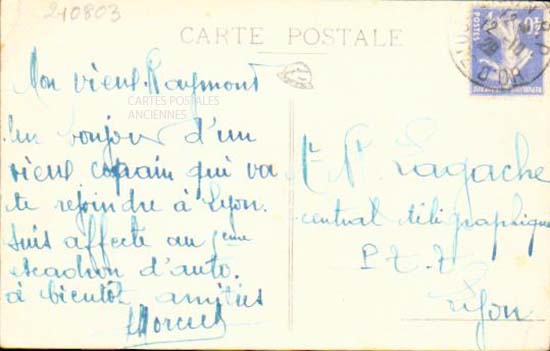 210803
CARTE POSTALE
Mon vieux Raymond
CARTES POSTALES
ANCIENNES
Un bonjour d'un
vieux copain qui va
te rejoindre à Lyon.
suis affecté au eme
escadron d'auto.
à bientôt amitiés
Marcel
Lagache
central télégraphique
P.T.T
Lyon
POSTES
D'OR